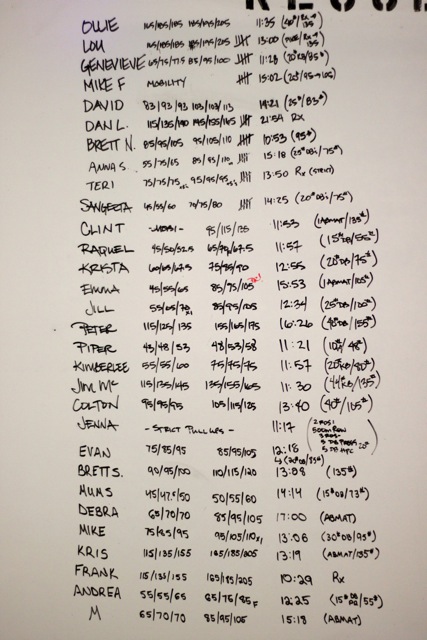 OLLIE 165/185/185 195/195/205 11:35
LOU 165/185/185 185/195/205 13:00
GENEVIEVE 65/75/775 85/95/100 11:28 (20#KB/85#)
MIKE F MOBILITY 15:02
DAVID 83/93/93 103/103/113 14:21 (25#/83#)
DAN L. 115/135/140 145/155/165 21:54 Rx
BRETT N. 85/95/105 95/105/110 10:53 (95#)
ANNA S. 55/75/65 85/95/110 15:18 (25#DB/75#)
TERI 75/75/75 95/95/95 13:50 Rx (STRICT)
SANGEETA 45/55/60 70/75/80 14:25 (20#DB/75#)
CLINT -MOBI- 95/115/135 11:53 (ABMAT/135#)
RAQUEL 45/50/52.5 65/70/67.5 11:57 (15#DB/55#)
KRISTA 60/65/67.5 75/85/90 12:55 (20#DB/75#)
EMMA 45/55/65 85/75/105 PR! 15:53 (ABMAT/105#)
JILL 55/65/70 85/95/105 12:34 (25#DB/105#)
PETER 115/125/135 155/165/175 16:26 (40#DB/155#)
PIPER 43/48/53 48/53/58 11:21
KIMBERLEE 55/55/60 75/75/75 11:57 (20#KB/80#)
JIM MC 115/135/145 135/155/165 11:30 (44#KB/135#)
COLTON 95/95/95 105/115/125 13:40 (40#/105#)
JENNA -STRICT PULLUPS- 11:17 500M ROW
EVAN 75/85/95 85/95/105 12:18
BRETT S. 90/95/100 110/115/120 13:08 (135#)
MUMS 45/47.5/50 50/55/60 14:14 (15#DB/73#)
DEBRA 65/70/70 85/95/105 17:00 (ABMAT)
MIKE 75/85/95 95/105/110 13:06 (30#DB/95#)
KRIS 115/135/155 165/185/205 13:19 (ABMAT/135#)
FRANK 115/135/155 165/185/205 10:29 Rx
ANDREA 55/55/65 65/75/85 F 12:25 (15#DB/55#)
M 65/70/70 85/95/105 15:18 (ABMAT)